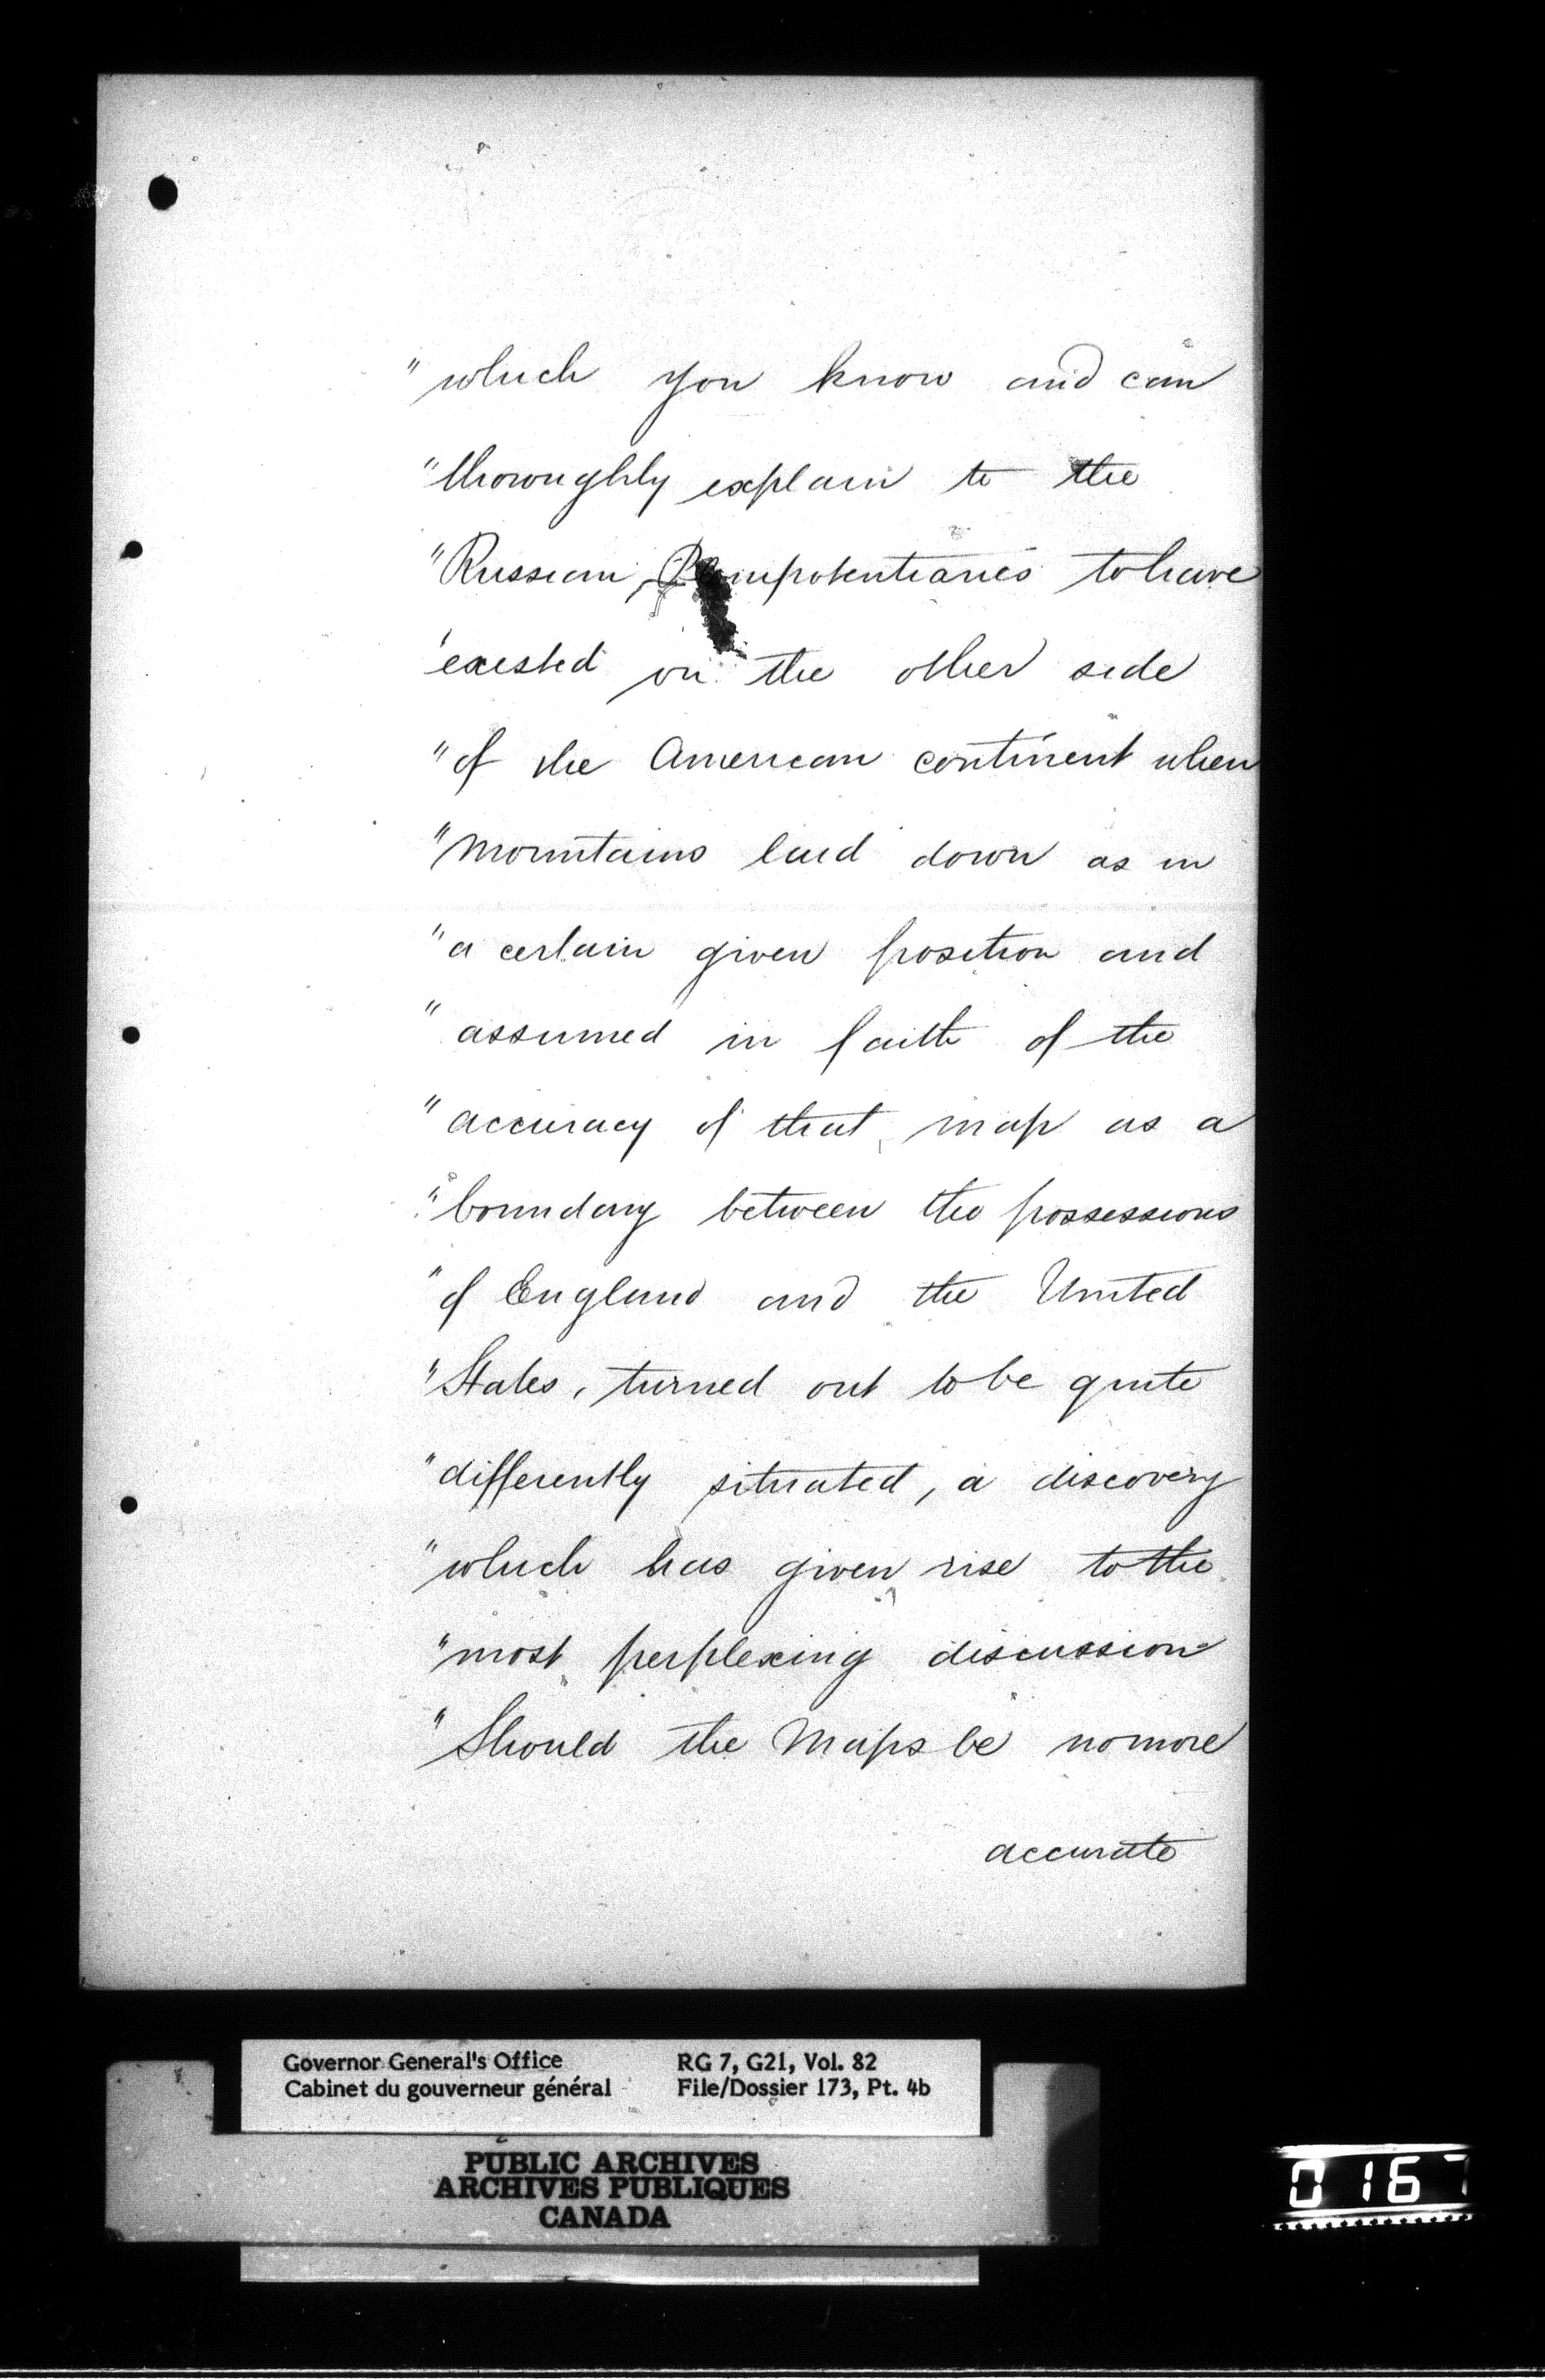 " which you know and can
" thoroughly explain to the
" Russian Plenipotentiaries to have
' existed on the other side
" of the American continent when
" mountains laid down as in
" a certain given position and
" assumed in faith of the
" accuracy of that map as a
" boundary between the possessions
" of England and the United
" States, turned out to be quite
" differently situated, a discovery
" which has given rise to the
" most perplexing discussion
" Should the Maps be no more
accurate
Governor General's Office RG 7, G21, Vol. 82
Cabinet du gouverneur général File/Dossier 173, Pt. 4b
PUBLIC ARCHIVES
ARCHIVES PUBLIQUES
CANADA
0167